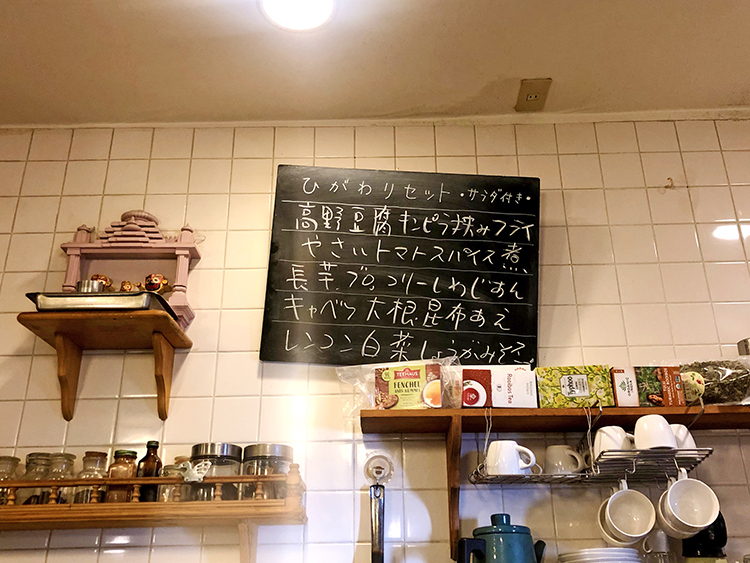 ひがわりセット・サラダ付き・
高野豆腐キンピラ挟みフライ
やさいトマトスパイス煮
長芋.ブロッコリーしめじあん
キャベツ大根.昆布あえ
レンコン白菜しょうがみそ
TEEHAUS
FENCHEL
Rooibos Tea